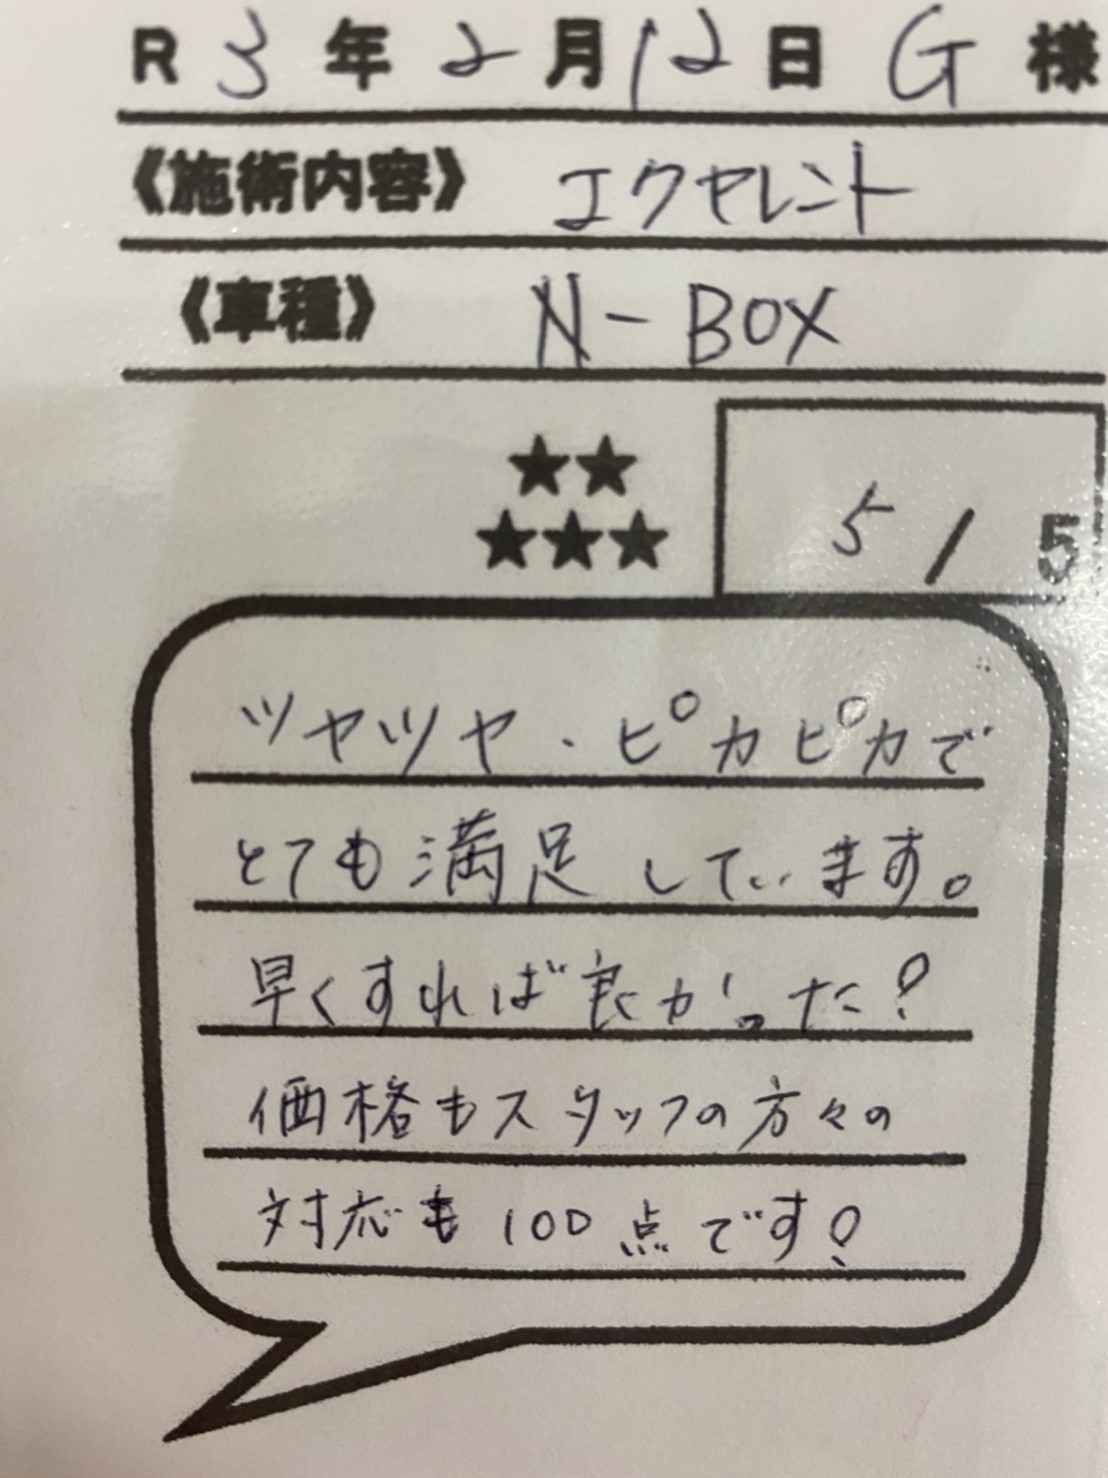 R3年2月12日 G様
《施術内容》 エクセレント
《車種》 N-BOX
★★
★★★
5/5
ツヤツヤ・ピカピカで
とても満足しています。
早くすれば良かった!
価格もスタッフの方々の
対応も100点です!